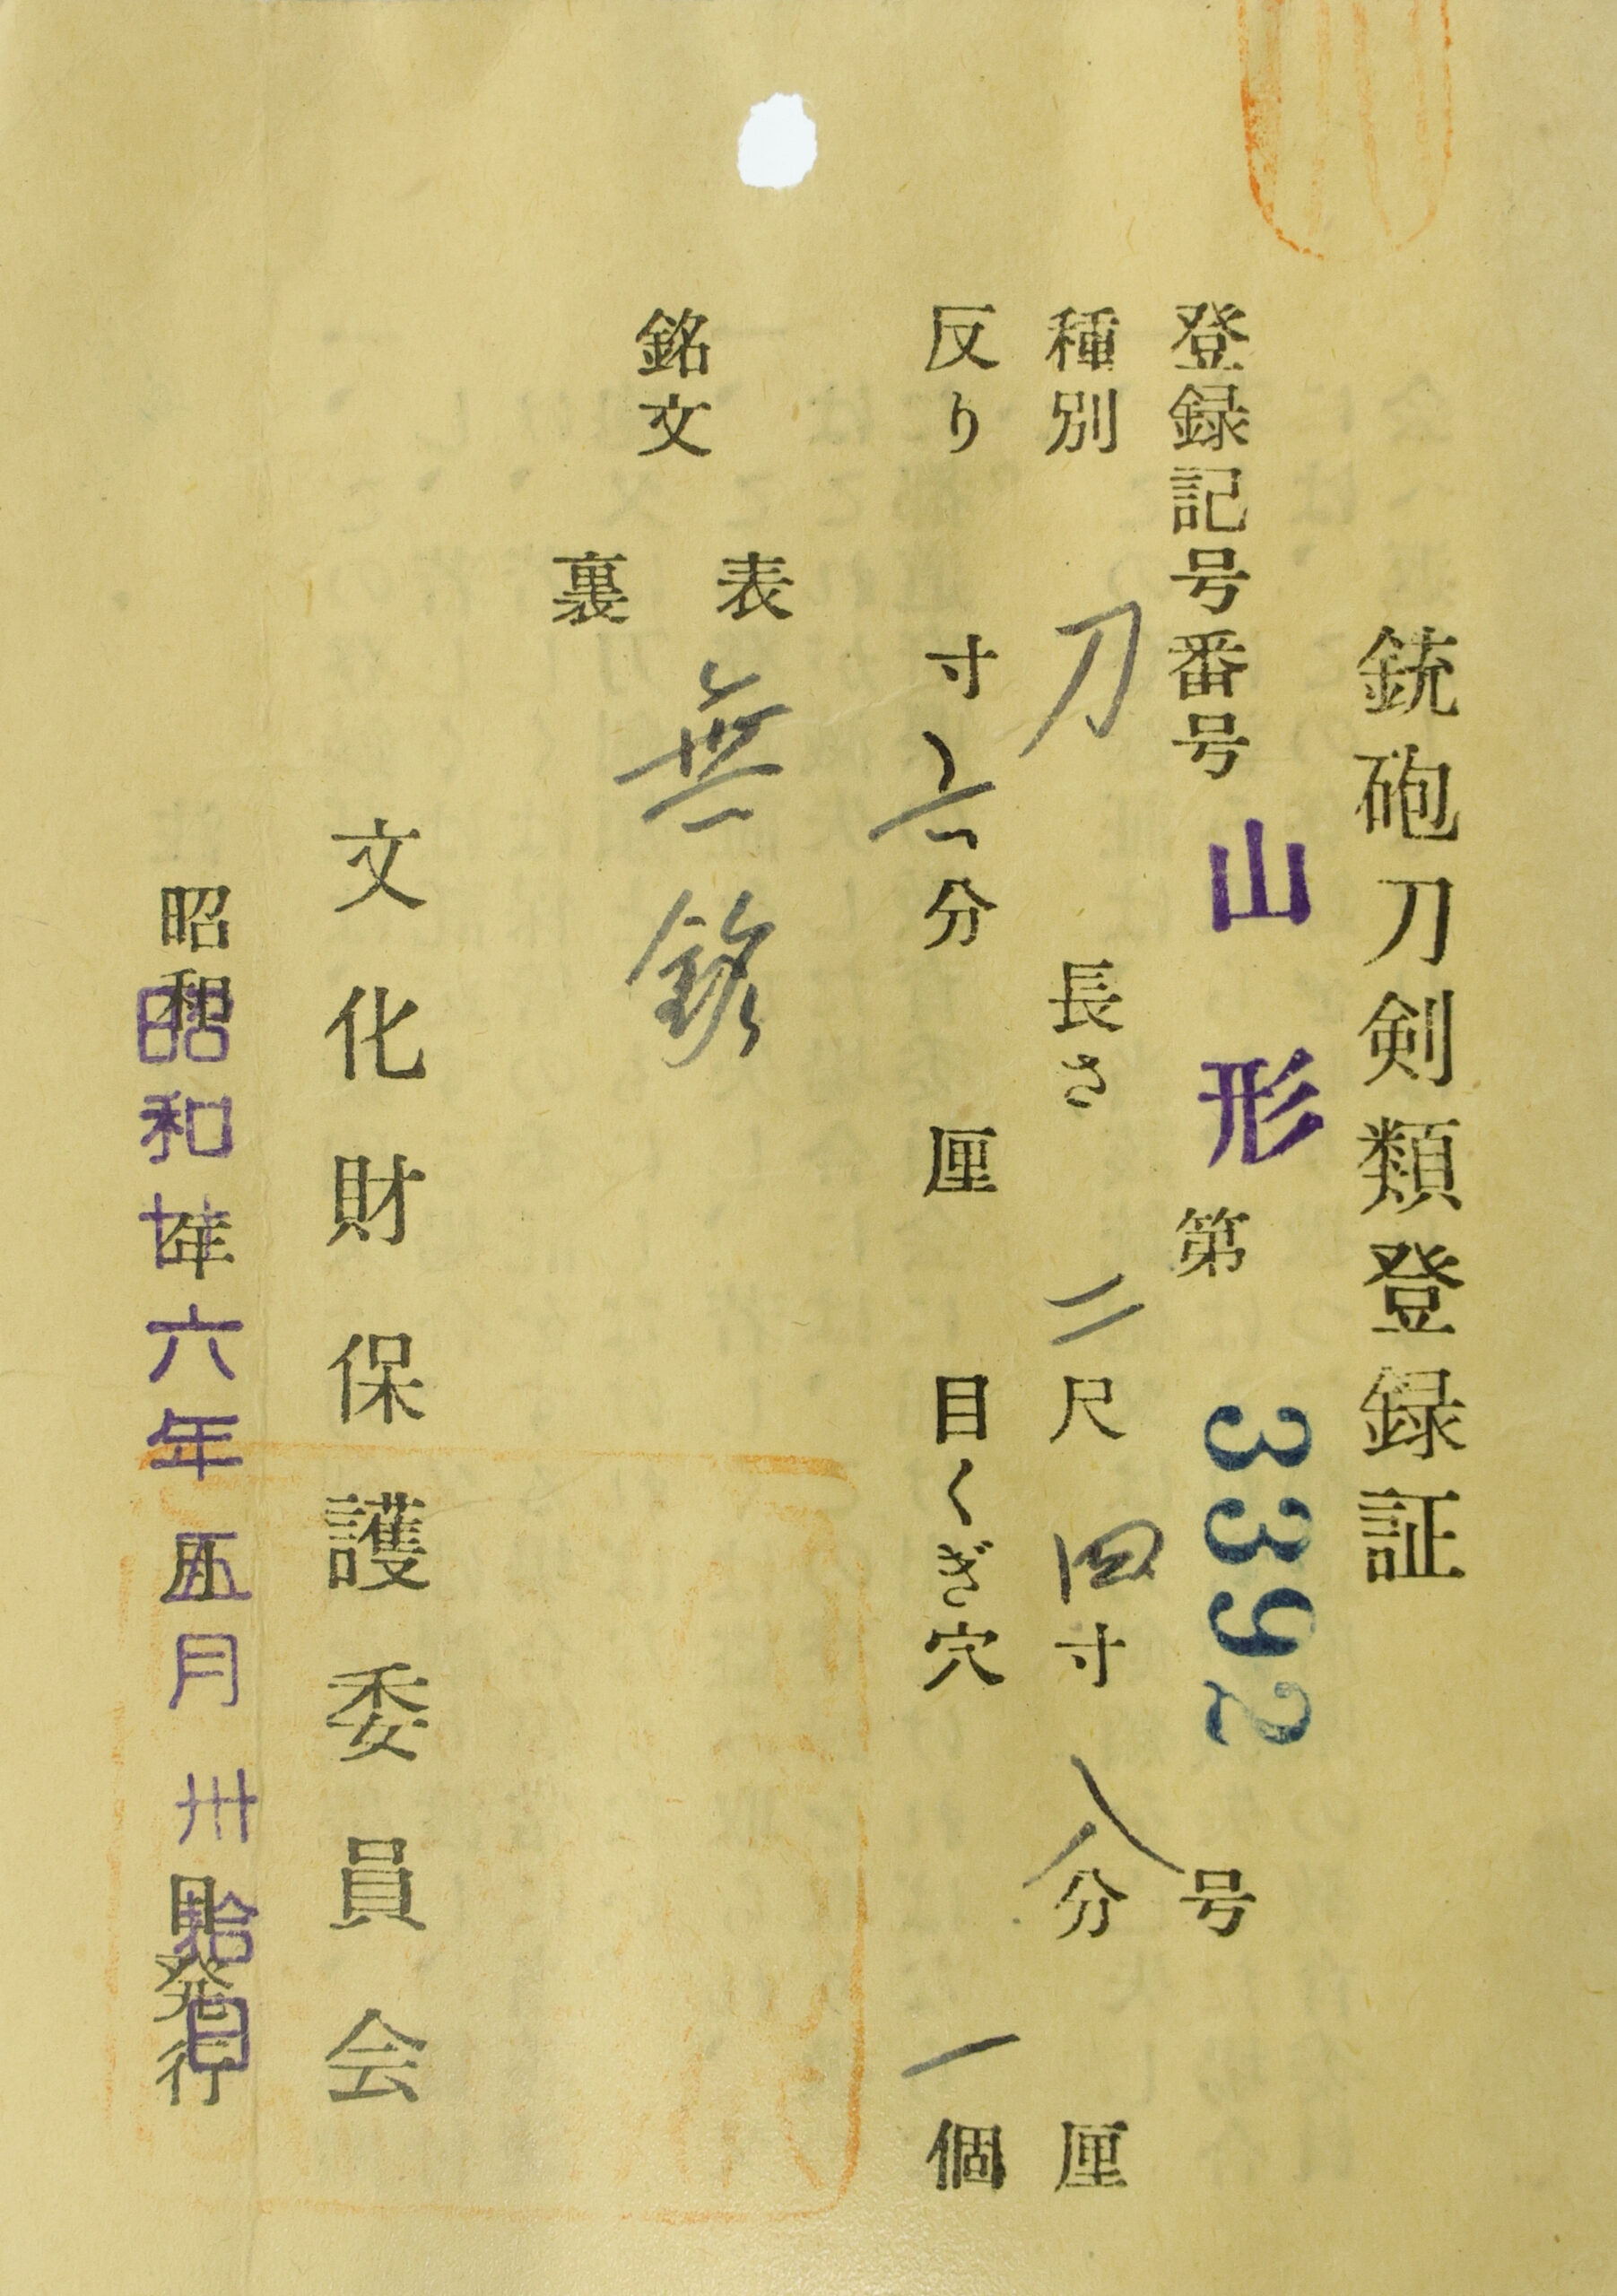 銃砲刀剣類登録証
登録記号番号 山形 第 3392 号
種別 刀 長さ 二尺 四寸 八分 厘
反り 寸 六分 厘 目くぎ穴 一個
銘文
表 無銘
裏
文化財保護委員会
昭和 年 月 日発行
昭和廿六年五月卅拾日